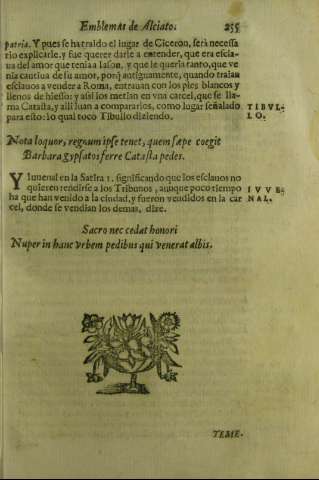 Emblemas de Alciato. 255
patria. Y pues se ha traido el lugar de Ciceron, serà necessa
rio explicarle, y fue querer darle a entender, que era escla-
ua del amor que tenia a Iason, y que le queria tanto, que ve
nia cautiua de su amor, porq̃ antiguamente, quando traian
esclauos a vender a Roma, entrauan con los pies blancos y
llenos de hiesso: y assi los metian en vna carcel, que se lla-
ma Catasta, y alli iuan a compararlos, como lugar señalado
para esto: lo qual toco Tibullo diziendo.
TIBVL-
LO.
Nota loquor, regnum ipse tenet, quem sæpe coegit
Barbara gypsatos ferre Catasta pedes.
Y Iuuenal en la Satira 1. significando que los esclauos no
quieren rendirse a los Tribunos, aunque poco tiempo
ha que han venido a la ciudad, y fueron vendidos en la car
cel, donde se vendian los demas, dize.
IVVE-
NAL.
Sacro nec cedat honori
Nuper in hanc vrbem pedibus qui venerat albis.
TEME-